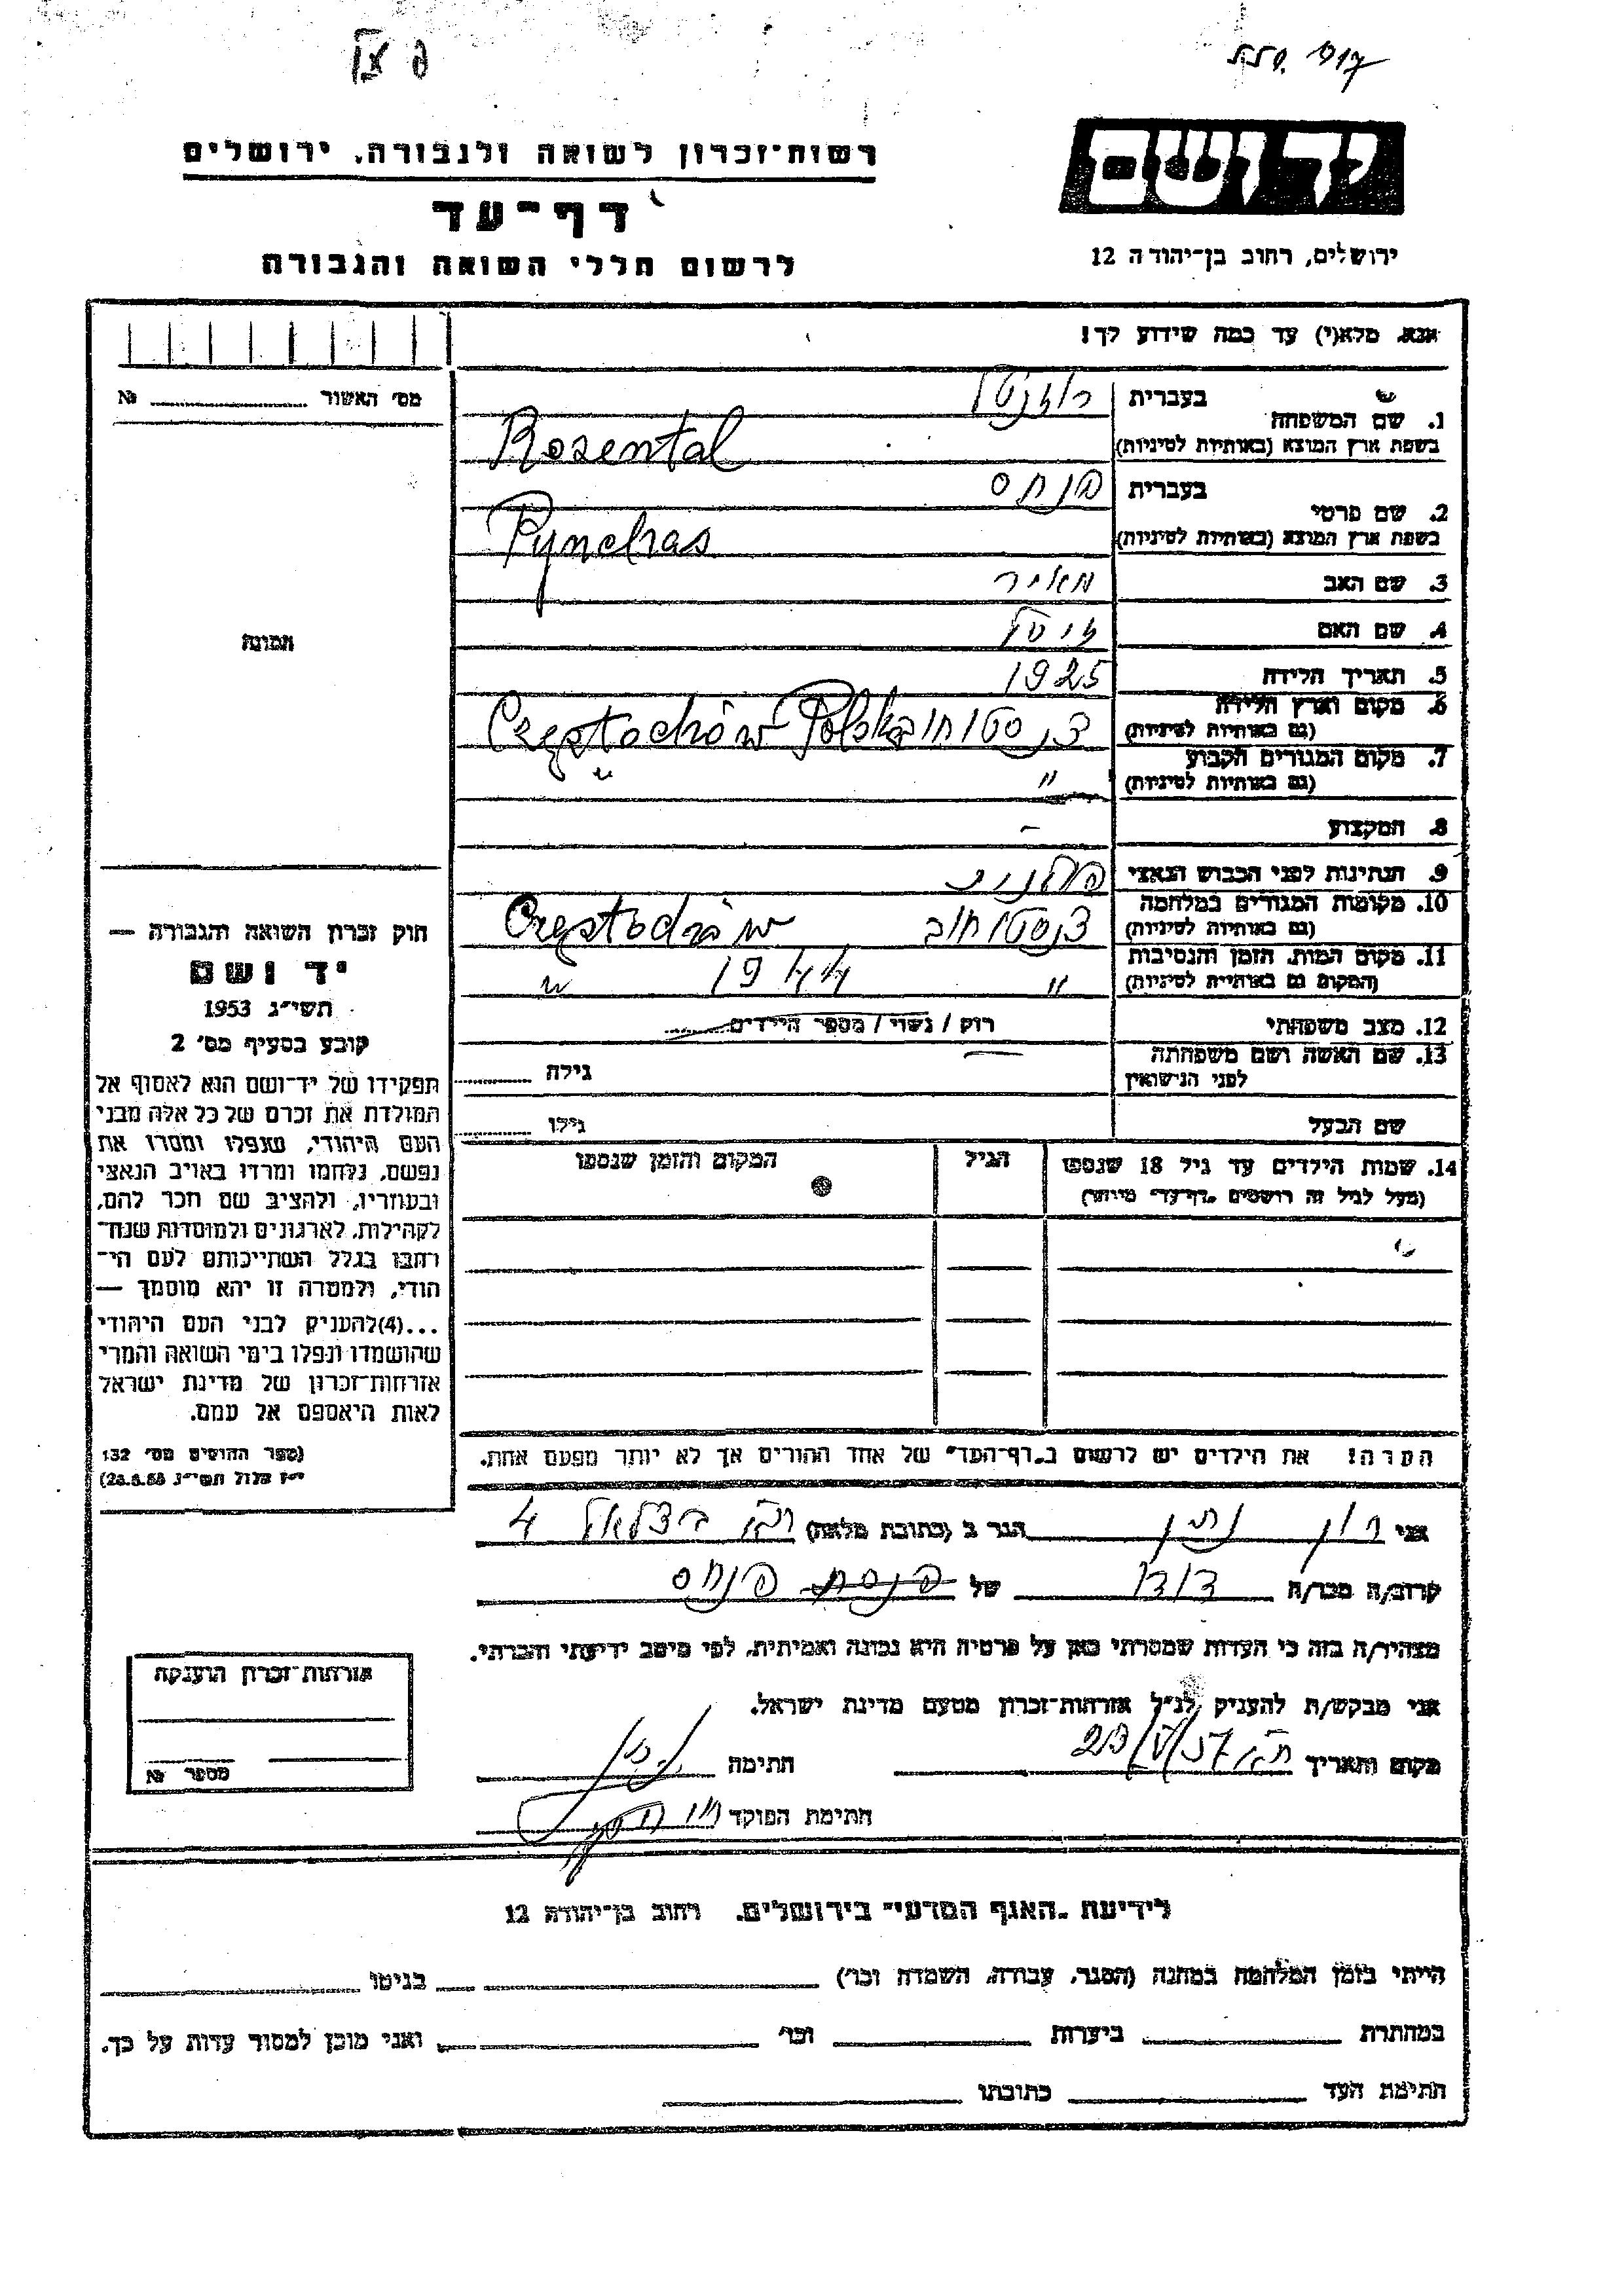 רשות־זכרון לשואה ולגבורה. ירושלים
דף־עד
לרשום חללי השואה והגבורה
יד ושם
ירושלים, רחוב בן־יהודה 12
אנא מלא(י) עד כמה שידוע לך!
מס׳ האשור № ........
תמונה
1. שם המשפחה
בעברית רוזנטל
בשפת ארץ המוצא (באותיות לטיניות) Rozental
2. שם פרטי
בעברית פנחס
בשפת ארץ המוצא (באותיות לטיניות) Pynchas
3. שם האב מאיר
4. שם האם
5. תאריך הלידה 1925
6. מקום וארץ הלידה
(גם באותיות לטיניות) צ'נסטוחוב Częstochów Polska
7. מקום המגורים הקבוע
(גם באותיות לטיניות) " "
8. המקצוע –
9. הנתינות לפני הכבוש הנאצי פולנית
10. מקומות המגורים במלחמה
(גם באותיות לטיניות) צ'נסטוחוב Częstochów
11. מקום המות, הזמן והנסיבות
(המקום גם באותיות לטיניות) " 1944 "
12. מצב משפחתי רוק / נשוי / מספר הילדים
13. שם האשה ושם משפחתה
לפני הנישואין גילה
שם הבעל גילו
14. שמות הילדים עד גיל 18 שנספו
(מעל לגיל זה רושמים „דף־עד״ מיוחד)
הגיל
המקום והזמן שנספו
הערה! את הילדים יש לרשום ב„דף־העד״ של אחד ההורים אך לא יותר מפעם אחת.
חוק זכרון השואה והגבורה —
יד ושם
תשי״ג 1953
קובע בסעיף מס׳ 2
תפקידו של יד־ושם הוא לאסוף אל
המולדת את זכרם של כל אלה מבני
העם היהודי, שנפלו ומסרו את
נפשם, נלחמו ומרדו באויב הנאצי
ובעוזריו, ולהציב שם וזכר להם,
לקהילות, לארגונים ולמוסדות שנח־
רבו בגלל השתייכותם לעם הי־
הודי, ולמטרה זו יהא מוסמך —
...(4)להעניק לבני העם היהודי
שהושמדו ונפלו בימי השואה והמרי
אזרחות־זכרון של מדינת ישראל
לאות היאספם אל עמם.
(ספר החוקים מס׳ 132
אני רון נתן הגר ב (כתובת מלאה) בצלאל 4
קרוב/ה מכר/ה דודו של פנחס
מצהיר/ה בזה כי העדות שמסרתי כאן על פרטיה היא נכונה ואמיתית, לפי מיטב ידיעתי והכרתי.
אני מבקש/ת להעניק לנ״ל אזרחות־זכרון מטעם מדינת ישראל.
מקום ותאריך חתימה
חתימת הפוקד
אזרחות־זכרון הוענקה
מספר №
לידיעת „האגף המדעי״ בירושלים. רחוב בן־יהודה 12
הייתי בזמן המלחמה במחנה (הסגר, עבודה, השמדה וכו׳) בגיטו
במחתרת ביערות וכו׳ ואני מוכן למסור עדות על כך.
חתימת העד כתובתו